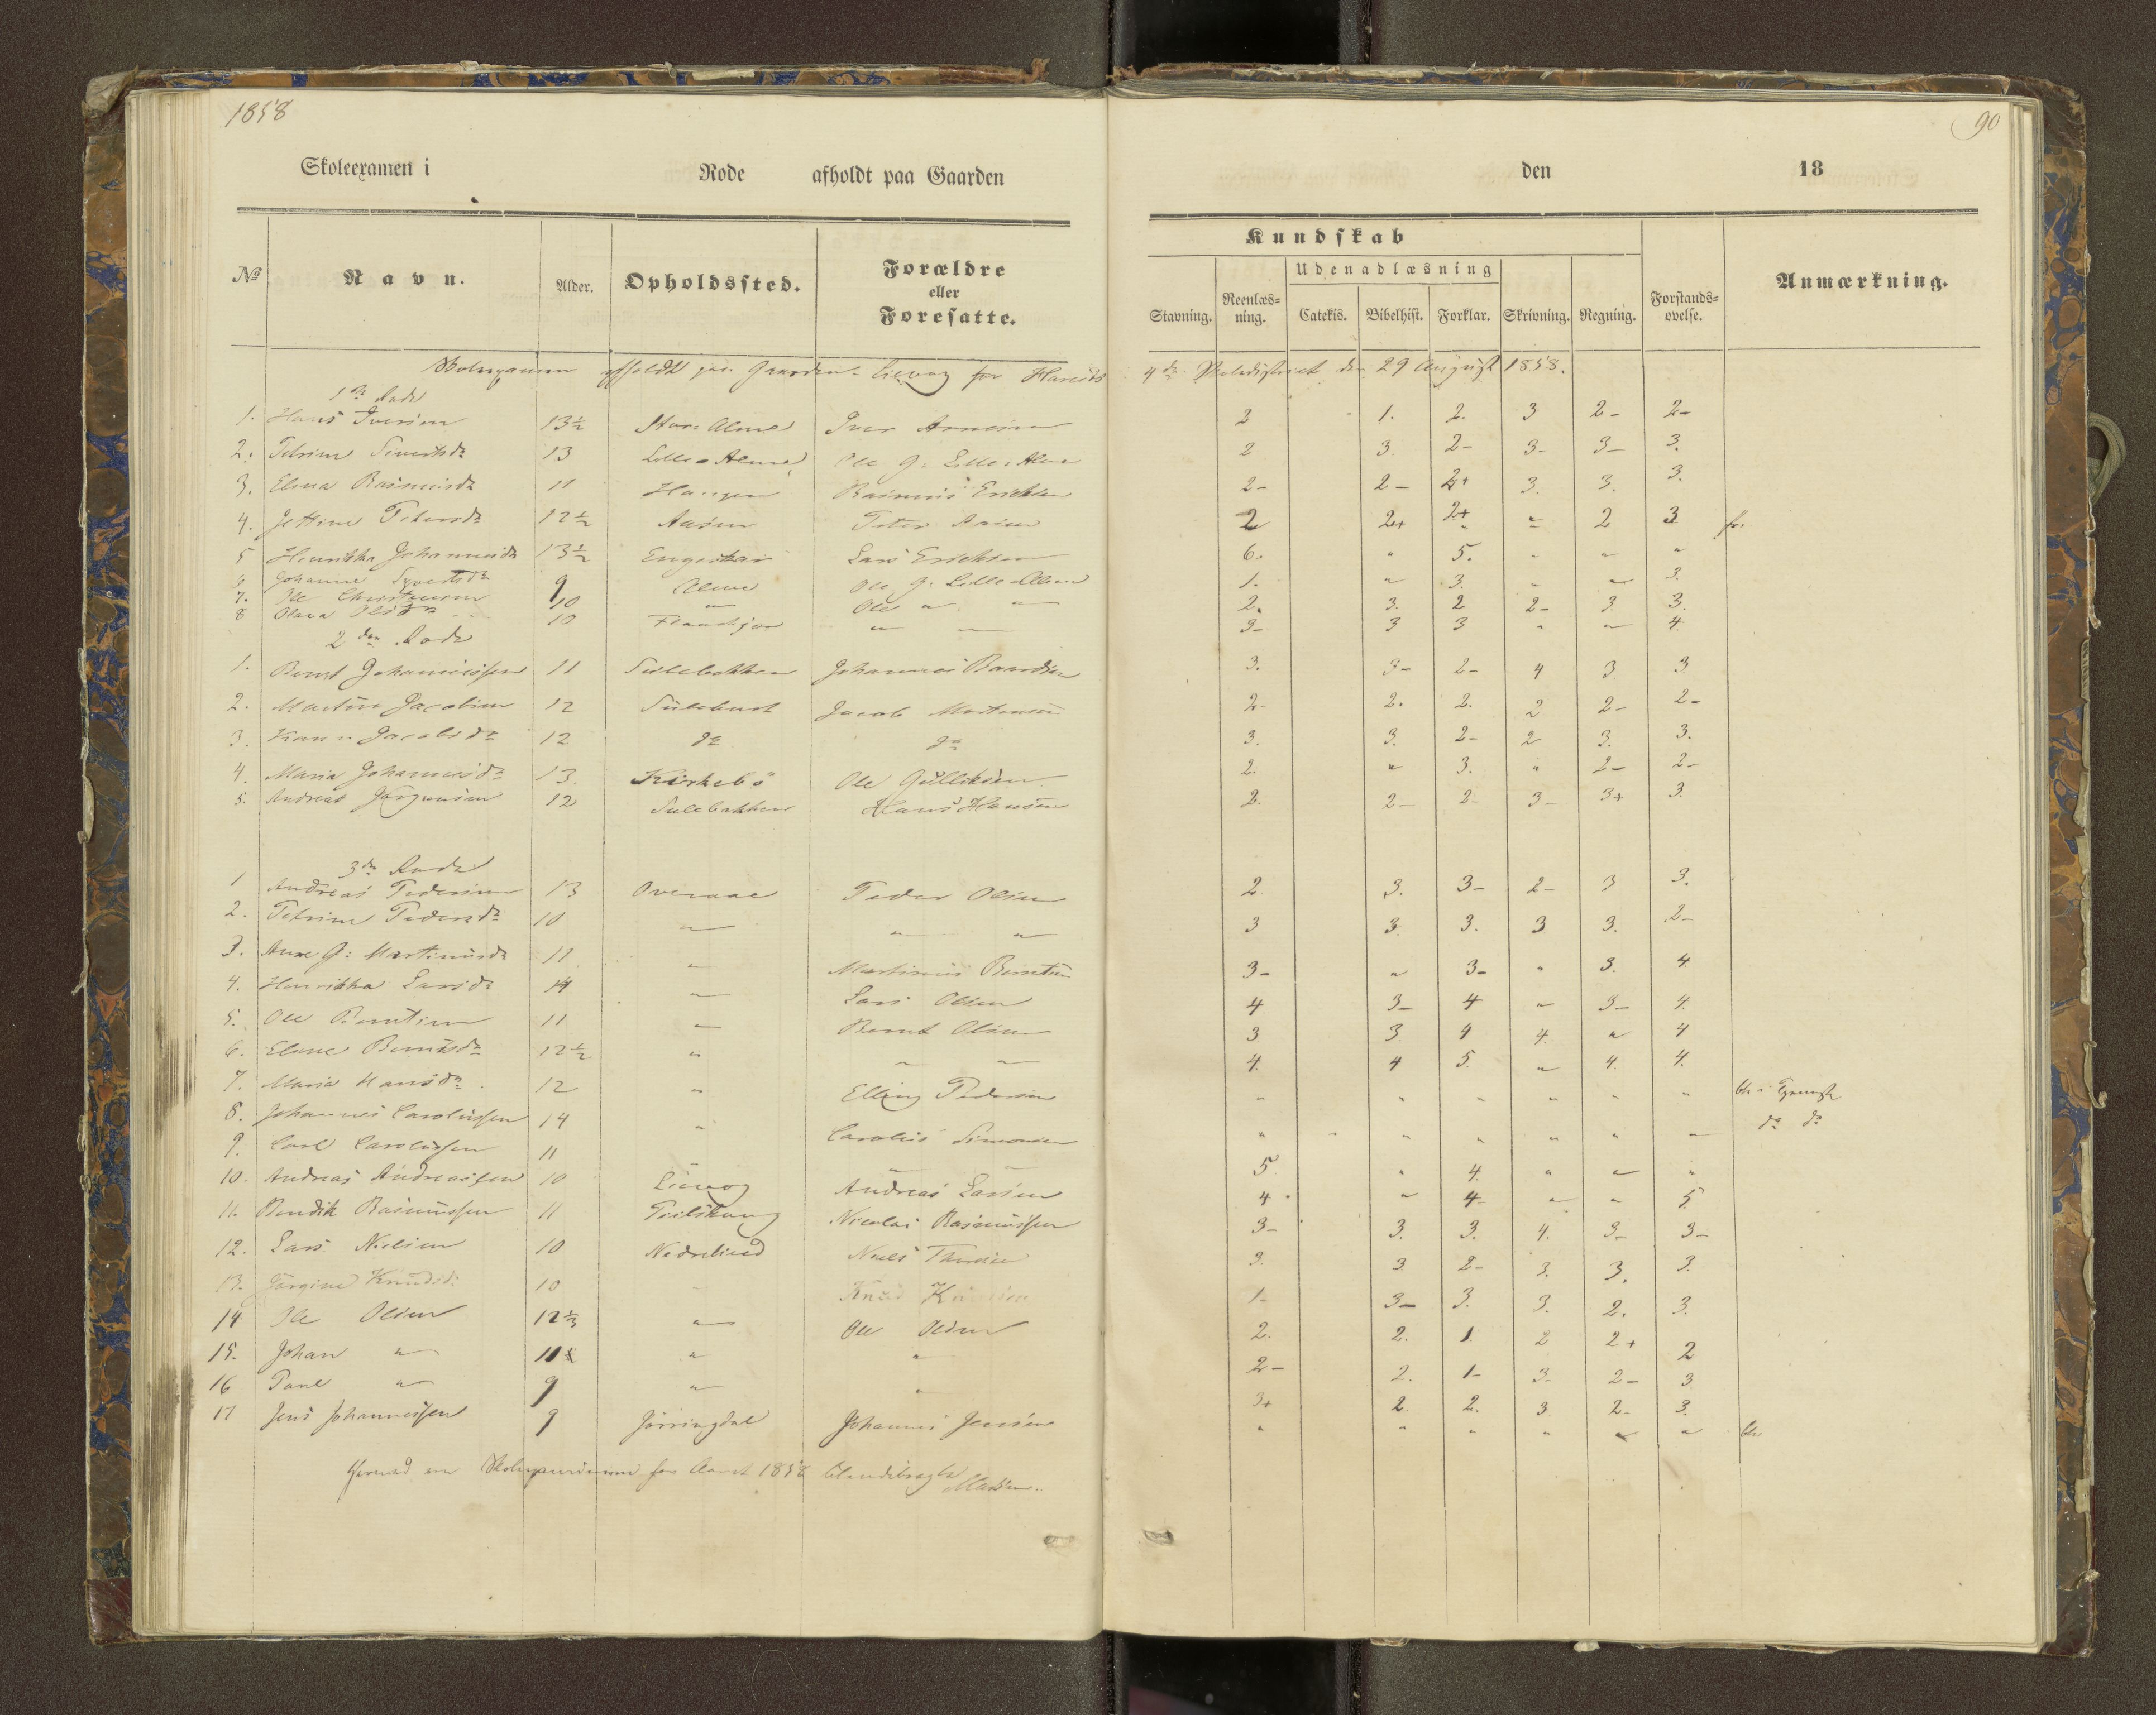 1858
90
Skoleexamen i Rode afholdt paa Gaarden den 18
Kundskab
Udenadlæsning
No Navn. Alder. Opholdssted. Forældre eller Foresatte. Stavning. Reenlæs-ning. Catekis. Bibelhist. Forklar. Skrivning. Regning. Forstands-ovelse. Anmærkning.
Skoleexamen afholdt paa Gaarden Liavog for Hareids 4de Skoledistrict den 29 August 1858.
1ste Rode
1. Hans Iversen 13½ Store Alme Iver Arnesen 2 1. 2. 3 2- 2-
2. Petrine Sivertsdr 13 Lille-Alme Ole J: Lille-Alme 2 3. 2- 3- 3- 3.
3. Elena Rasmusdr 11 Haugen Rasmus Eriksen 2- 2- 2+ 3. 3. 3.
4. Jettine Petersdr 12½ Aasen Peter Aasen 2 2+ 2+ " 2 3 fr.
5 Henrikka Johannesdr 13½ Lars Eriksen 6. " 5. " " "
6 Johanne Syvertsdr 9 Alme Ole J: Lille-Alme 1. " 3. " " 3.
7. Ole Christensen 10 " Ole " " 2. 3. 2 2- 3. 3.
8 Olava Olsdr 10 " " 3- 3 3 " " 4.
2den Rode
1. Bernt Johannessen 11 Sulebakken Johannes Baardsen 3. 3- 2- 4 3 3
2. Martin Jacobsen 12 Jacob Mortensen 2- 2. 2. 2 2- 2-
3. Karen Jacobsdr 12 do do 3. 3. 2- 2 3. 3.
4. Maria Johannesdr 13. Kirkebö Ole Gulliksen 2. " 3. " 2- 2-
5. Andreas Jörgensen 12 Sulebakken Hans Hansen 2. 2- 2- 3- 3+ 3.
3de Rode
1 Andreas Pedersen 13 Overaae Peder Olsen 2 3. 3- 2- 3 3.
2. Petrine Pedersdr 10 " " " 3 3. 3. 3 3. 2-
3. Ane J: Martinusdr 11 " Martinus Berntsen 3- " 3- " 3. 4
4. Henrikka Larsdr 14 " Lars Olsen 4 3- 4 " 3- 4.
5. Ole Berntsen 11 " Bernt Olsen 3 3 4 4. " 4
6. Elene Berntsdr 12½ " " " 4. 4 5. " 4. 4.
7. Maria Hansdr 12 " Elling Pedersen " " " " " "
8. Johannes Carolussen 14 " Carolus Simonsen " " " " " " do do
9. Carl Carolussen 11 " " 5 " 4. " " "
10. Andreas Andreassen 10 Liavog Andreas Larsen 4 " 4- " " 5
11. Bendik Rasmussen 11 Nicolai Rasmussen 3- 3. 3. 4. 3- 3-
12. Lars Nielsen 10 Nedreliied Niels 3. 3 2- 3. 3. 3.
13. Jörgine Knudsdr 10 Knud Knudsen 1- 3- 3. 3. 2. 3.
14 Ole Olsen 12½ " Ole Olsen 2. 2. 1. 2 2+ 2
15. Johan " 11 " " 2- 2. 1- 3- 2- 3
16 Paul " 9 " " 3+ 2. 2. 3 2- 3.
17 Jens Johannessen 9 Jörringdal Johannes Jensen " " " " " "
Hermed er Skoleexamen for Aaret 1858